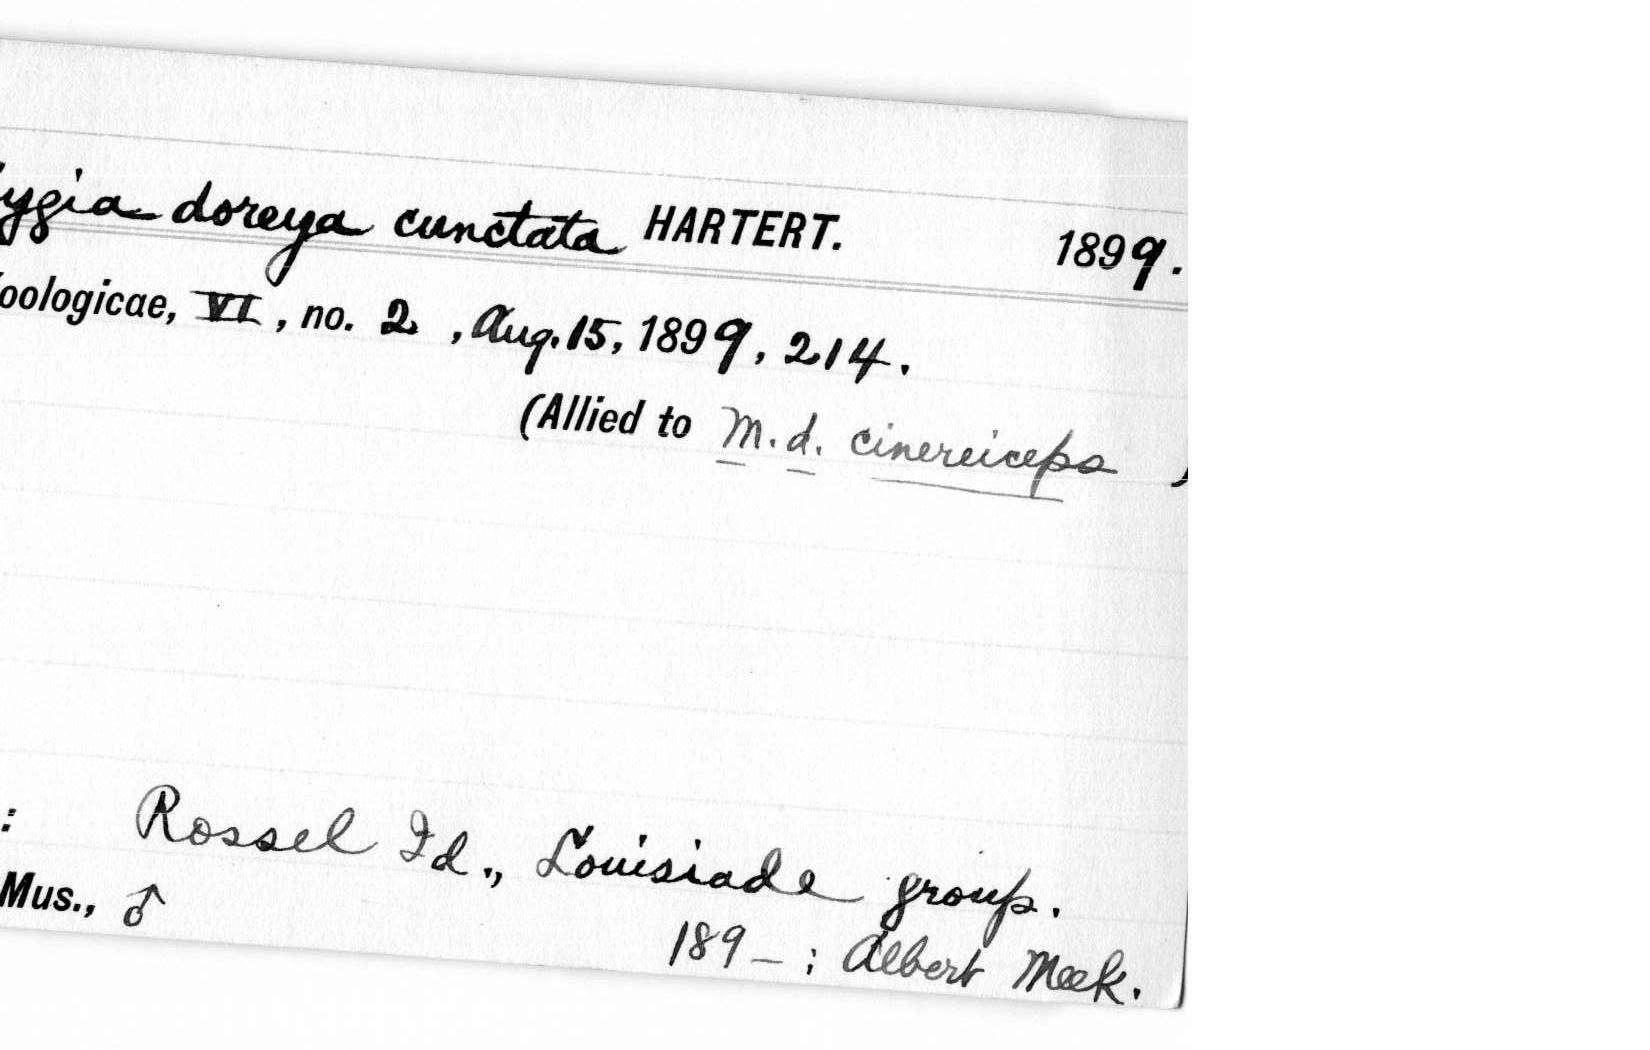 ygia doreya cunctata HARTERT. 1899.
oologicae, VI, no. 2, Aug. 15, 1899, 214.
(Allied to M. d. cinereiceps )
: Rossel Id., Louisiade group.
Mus., ♂
189_ ; Albert Meek.